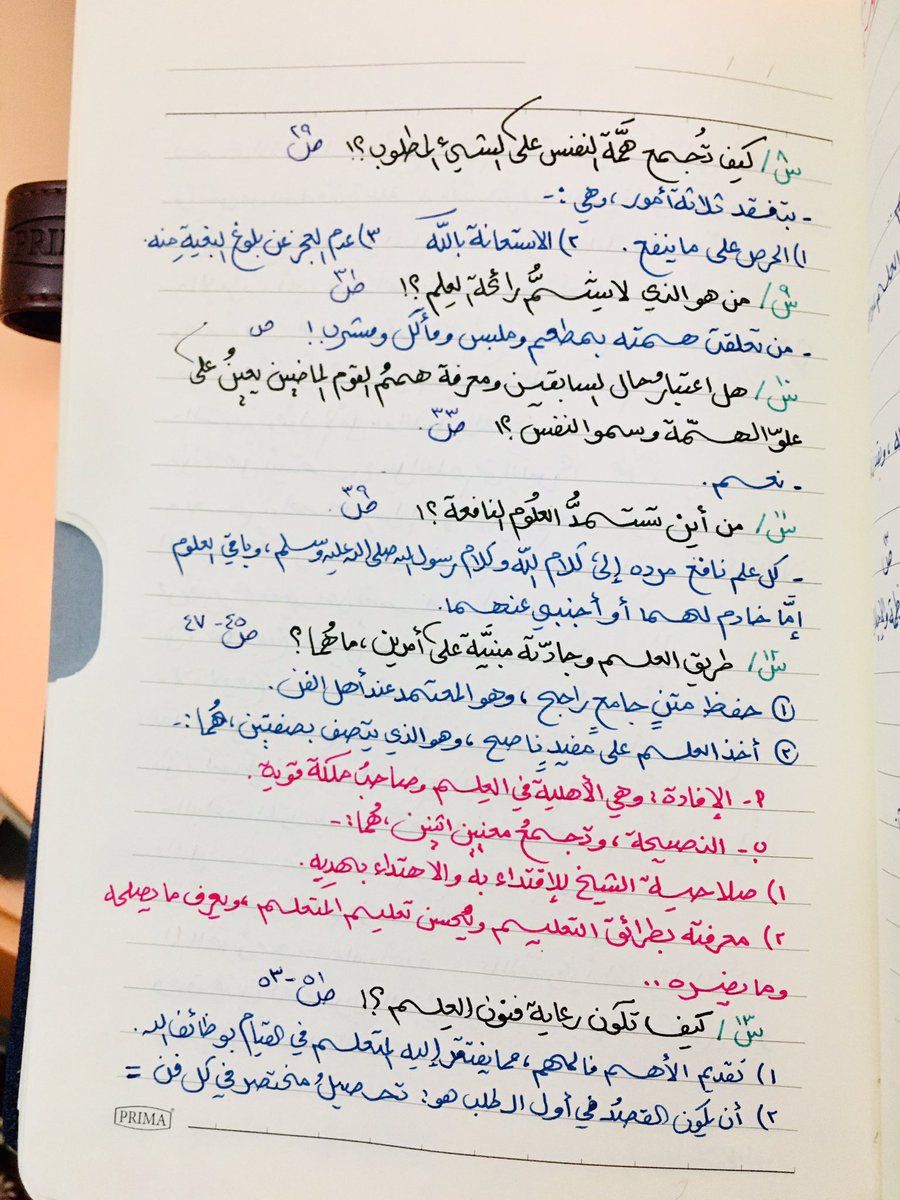 س٨/ كيف تُجمع هِمَّة النفس على الشيء المطلوب؟! ص٢٩
- بتفقد ثلاثة أمور، وهي :-
١) الحرص على ما ينفع. ٢) الاستعانة بالله ٣) عدم العجز عن بلوغ البغية منه.
س٩/ من هو الذي لا يشمُّ رائحة العلم؟! ص٣١
- من تعلقت همته بمطعم وملبس ومأكل ومشرب! ص
س١٠/ هل اعتبار حال السابقين ومعرفة همم القوم الماضين يعينُ على
علوّ الهمّة وسمو النفس؟! ص٣٣.
- نعم.
س١١/ من أين تستمدُّ العلُوم النافعة؟! ص٣٩.
- كل علم نافع مرده إلى كلام الله وكلام رسول الله صلى الله عليه وسلم، وباقي العلوم
إمَّا خادم لهما أو أجنبي عنهما.
س١٢/ طريق العلم وجادّته مبنيَّة على أمرين، ما هُما؟ ص٤٥-٤٧
① حفظ متنٍ جامعٍ راجح، وهو المعتمد عند أهل الفن.
② أخذ العلم على مفيدٍ ناصح، وهو الذي يتصف بصفتين، هُما :-
أ- الإفادة: وهي الأهلية في العلم وصاحبُ ملكة قوية.
ب- النصيحة، وتجمعُ معنيين اثنين، هُما :-
١) صلاحية الشيخ للإقتداء به والاهتداء بهديه.
٢) معرفته بطرائق التعليم ويُحسن تعليم المتعلم، ويعرف ما يصلحه
وما يضره..
س١٣/ كيف تكون رعاية فنون العلم؟! ص٥١-٥٣
١) تقديم الأهم فالمهم، مما يفتقر إليه المتعلم في القيام بوظائف الله.
٢) أن يكون القصدُ في أول الطلب هو: تحصيلُ مختصر في كل فن =
PRIMA